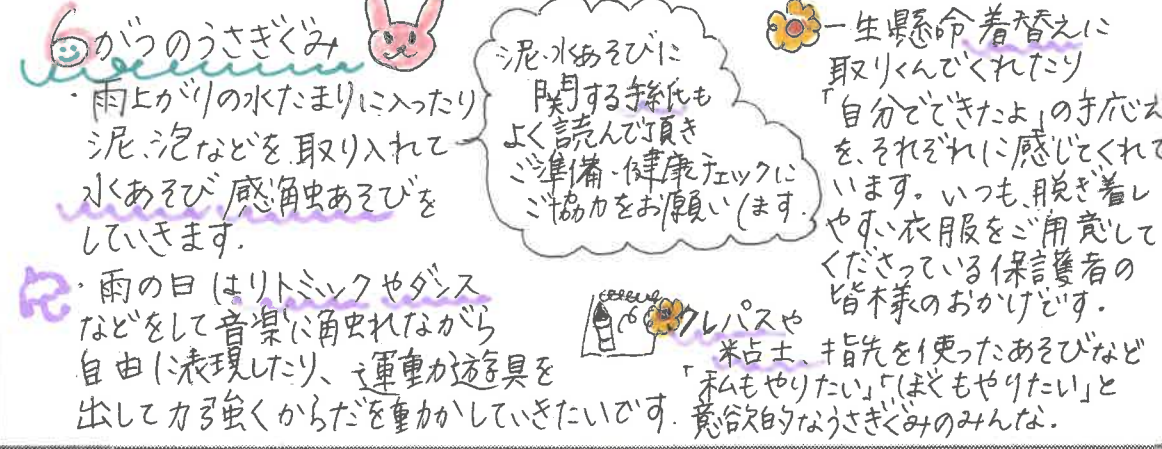 6がつのうさぎぐみ
・雨上がりの水たまりに入ったり
泥、泡などを取り入れて
水あそび 感触あそびを
していきます.
・雨の日はリトミックやダンス
などをして音楽に触れながら
自由に表現したり、運動遊具を
出して力強くからだを動かしていきたいです.
泥・水あそびに
関する手紙も
よく読んで頂き
ご準備・健康チェックに
ご協力をお願いします.
一生懸命着替えに
取りくんでくれたり
「自分でできたよ」の手応え
を、それぞれに感じてくれて
います。いつも、脱ぎ着し
やすい衣服をご用意して
くださっている保護者の
皆様のおかげです.
クレパスや
粘土、指先を使ったあそびなど
「私もやりたい」「ぼくもやりたい」と
意欲的なうさぎぐみのみんな.